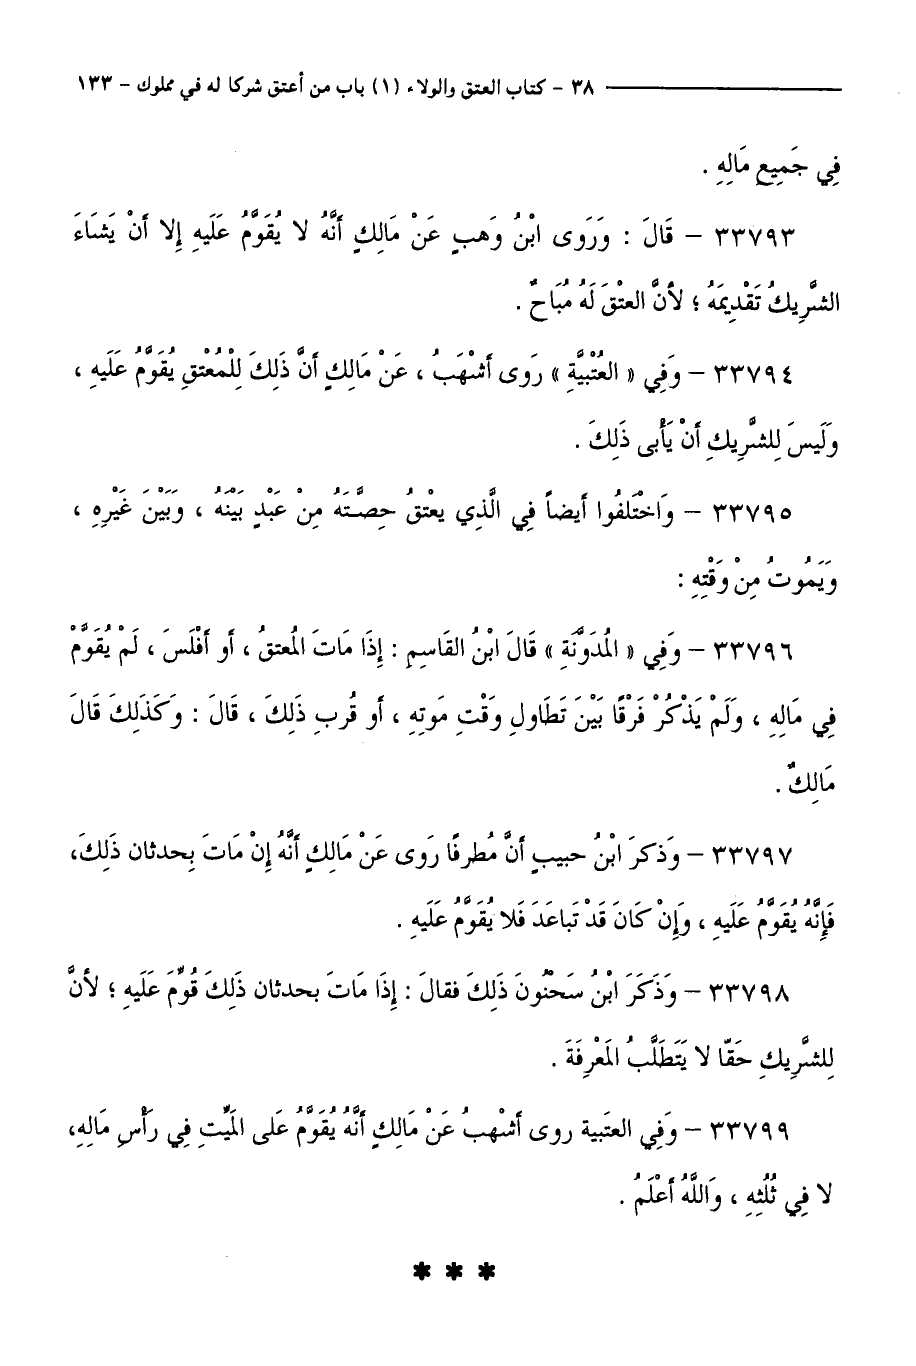 ٣٨ - كتاب العتق والولاء (١) باب من أعتق شركا له في مملوك - ١٣٣
فِي جَمِيعِ مَالِهِ .
٣٣٧٩٣ - قَالَ : وَرَوى ابْنُ وَهبٍ عَنْ مَالِكٍ أَنَّهُ لا يُقَوَّمُ عَلَيهِ إِلا أَنْ يَشَاءَ
الشَّرِيكُ تَقْدِيمَهُ ؛ لأَنَّ العتْقَ لَهُ مُبَاحٌ .
٣٣٧٩٤ - وَفِي « العُتْبيَّةِ » رَوى أَشْهَبُ ، عَنْ مَالِكٍ أَنَّ ذَلِكَ لِلْمُعْتِقِ يُقَوَّمُ عَلَيهِ ،
وَلَيسَ لِلشَّرِيكِ أَنْ يَأْبى ذَلِكَ .
٣٣٧٩٥ - وَاخْتَلَفُوا أَيضاً فِي الَّذِي يعْتقُ حِصَّتَهُ مِنْ عَبْدٍ بَيْنَهُ ، وَبَيْنَ غَيْرِهِ ،
وَيَمُوتُ مِنْ وَقْتِهِ :
٣٣٧٩٦ - وَفِي « المُدَوَّنَةِ » قَالَ ابْنُ القَاسِمِ : إِذَا مَاتَ المُعتقُ ، أَو أَفْلَسَ ، لَمْ يُقَوَّمْ
فِي مَالِهِ ، وَلَمْ يَذْكُرْ فَرْقًا بَيْنَ تَطَاولِ وَقْتِ مَوتِهِ ، أَو قُربِ ذَلِكَ ، قَالَ : وَكَذَلِكَ قَالَ
مَالِكٌ .
٣٣٧٩٧ - وَذكرَ ابْنُ حبيبٍ أَنَّ مُطرفًا رَوى عَنْ مَالِكٍ أَنَّهُ إِنْ مَاتَ بِحدثان ذَلِكَ،
فَإِنَّهُ يُقَوَّمُ عَلَيهِ ، وَإِنْ كَانَ قَدْ تَباعَدَ فَلا يُقَوَّمُ عَلَيهِ .
٣٣٧٩٨ - وَذَكَرَ ابْنُ سَحْنُونَ ذَلِكَ فقالَ : إِذَا مَاتَ بحدثان ذَلِكَ قُوِّمَ عَلَيهِ ؛ لأَنَّ
لِلشَّرِيكِ حَقّا لا يَتَطَلَّبُ المَعْرِفَةَ .
٣٣٧٩٩ - وَفِي العتَبية روى أشْهبُ عَنْ مَالِكٍ أَنَّهُ يُقَوَّمُ عَلى المَيِّتِ فِي رَأْسِ مَالِهِ،
لا فِي ثُلُثِهِ ، وَاللَّهُ أَعْلَمُ .
* * *